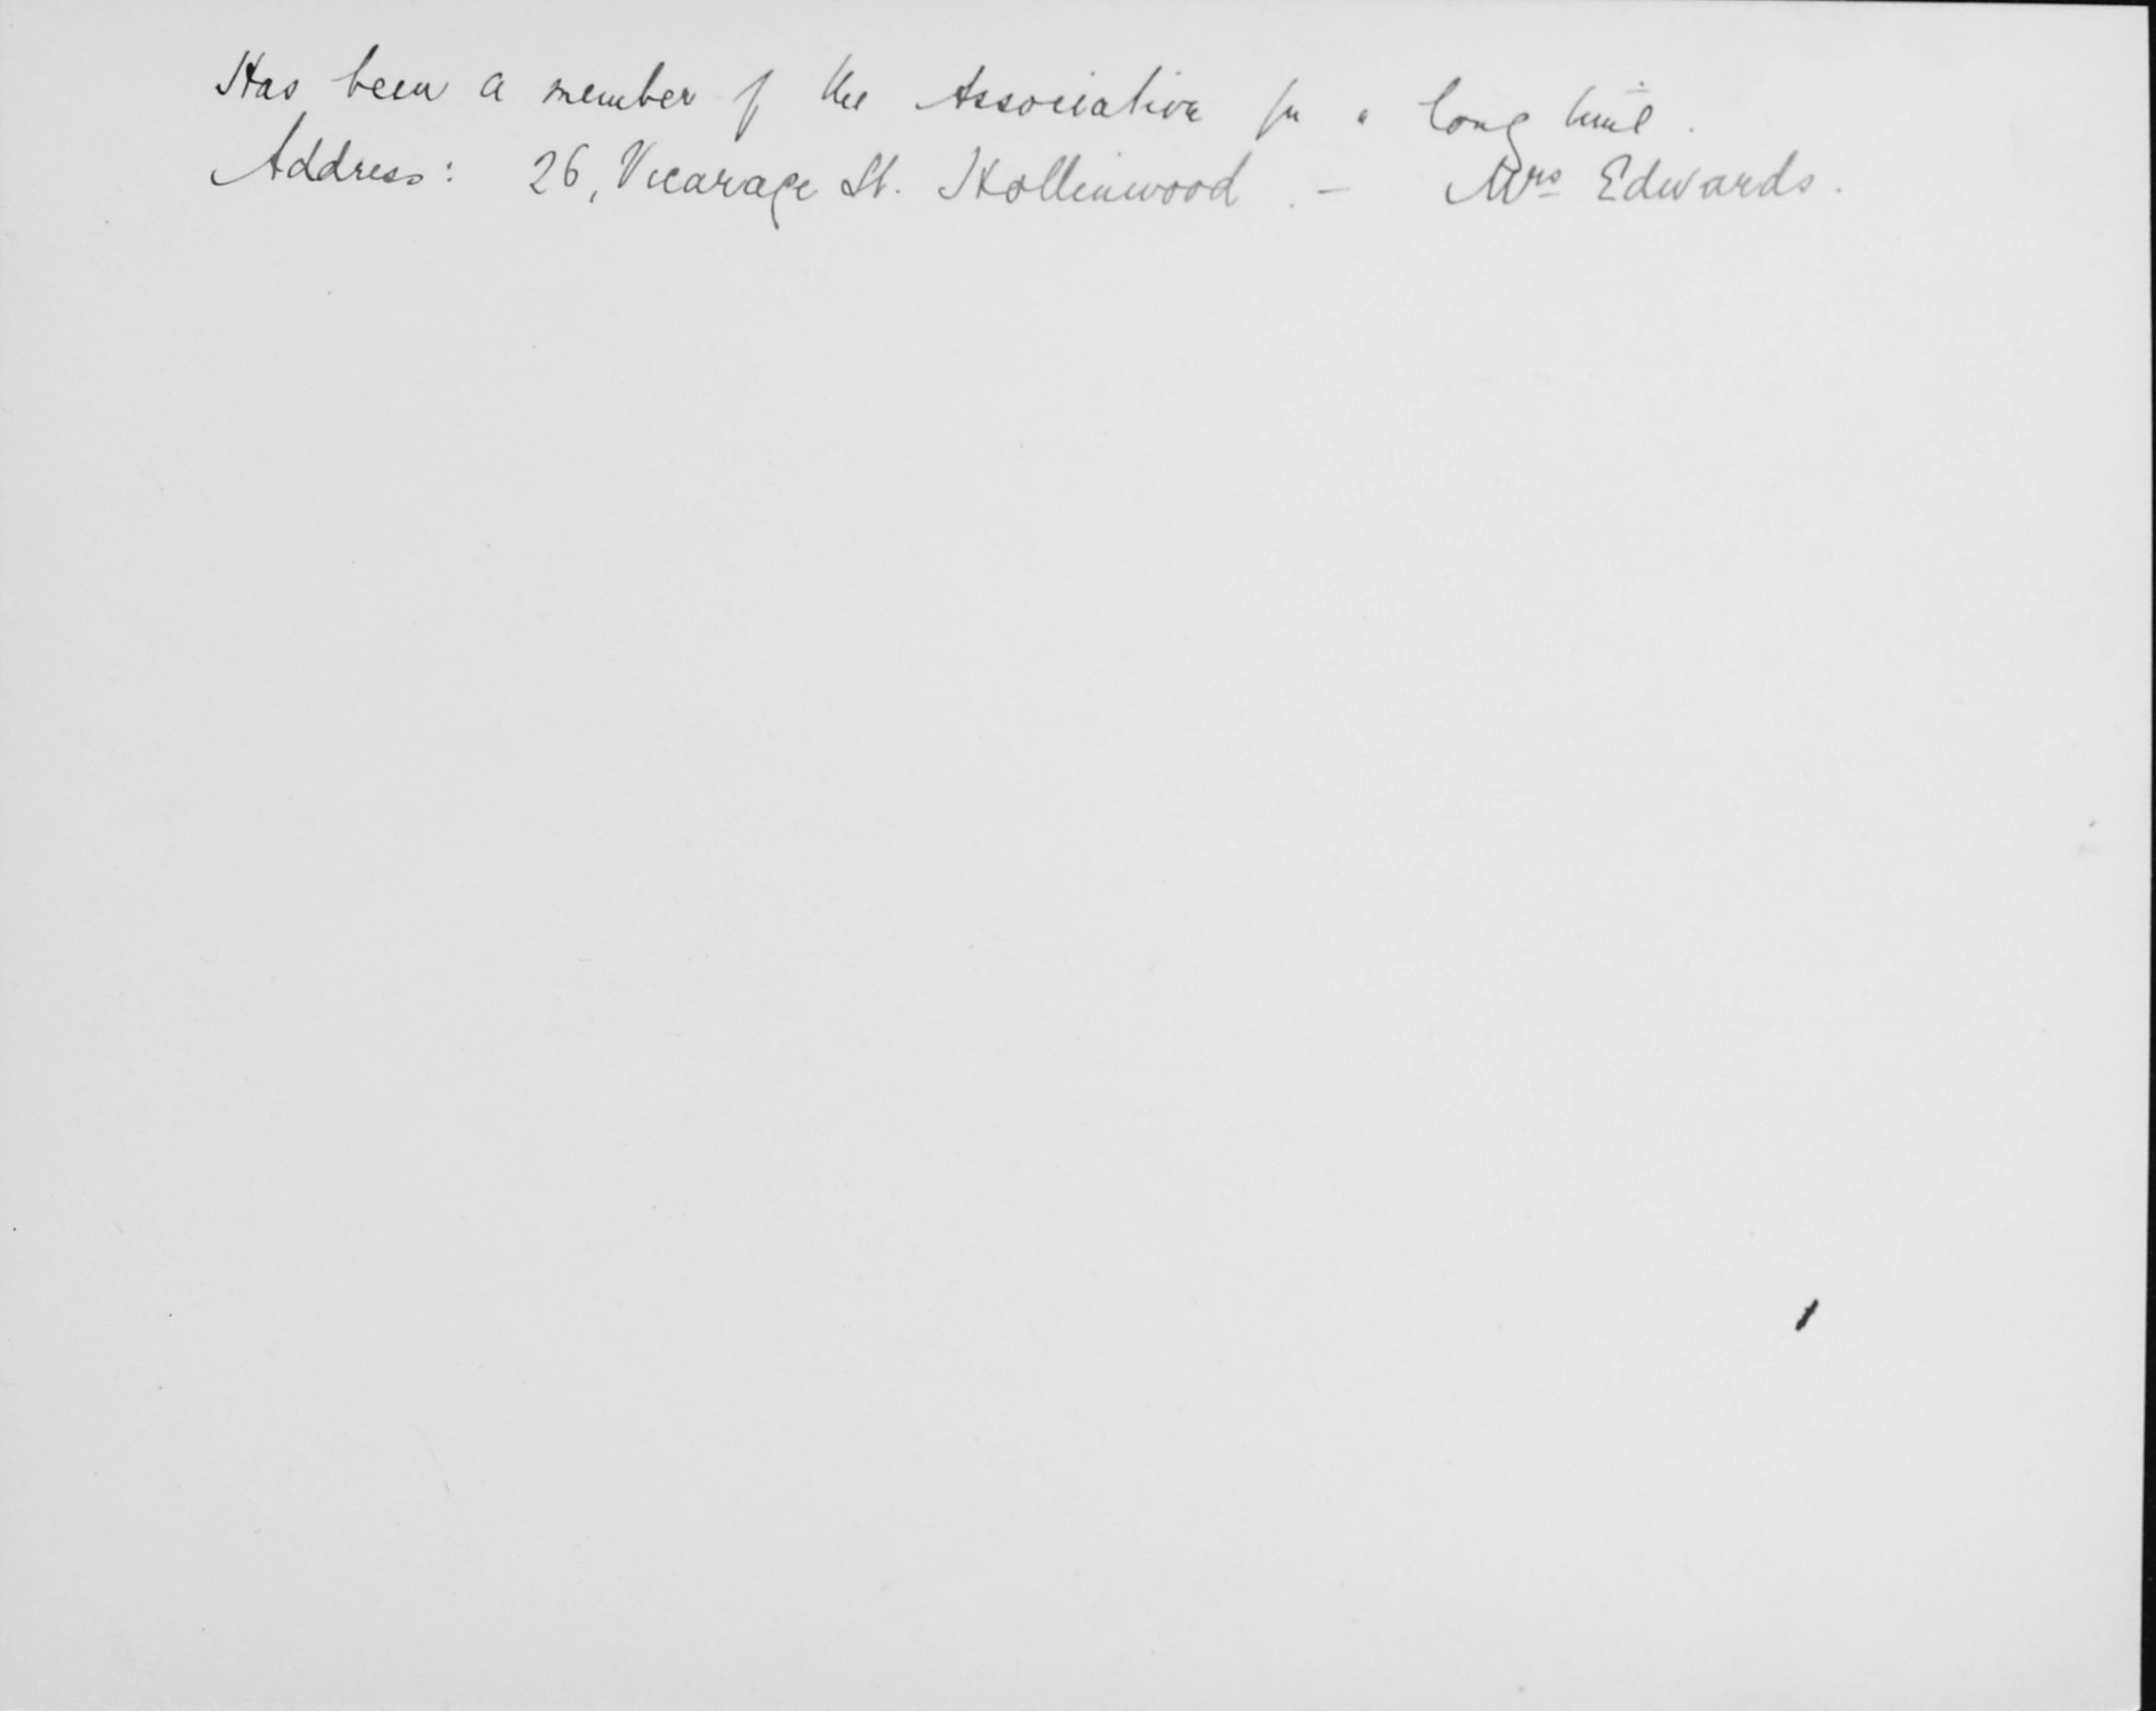 Has been a member of the Association for a long time.
Address: 26, Vicarage St. Hollinwood. - Mrs Edwards.